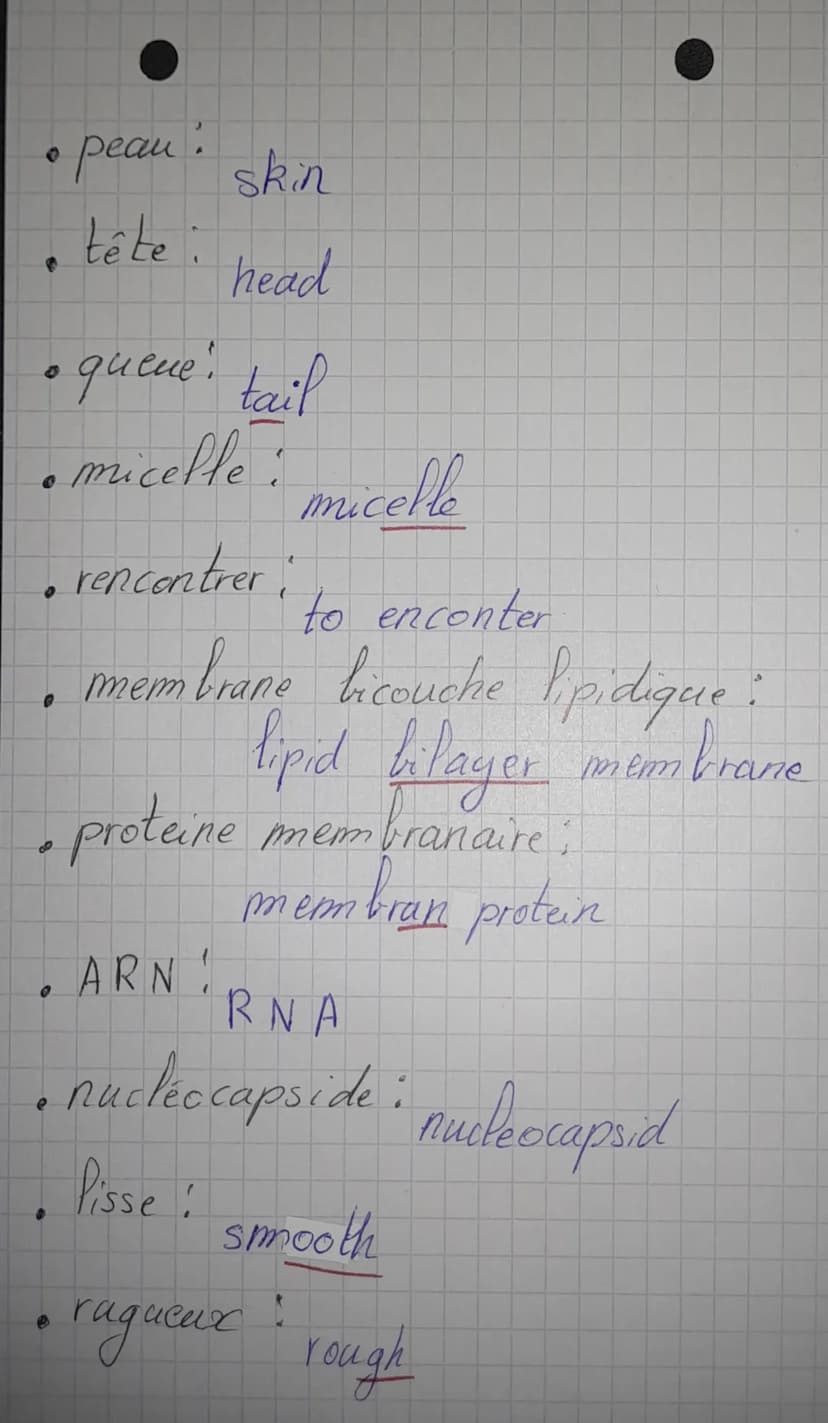 • peau :
skin
• tête :
head
• queue :
tail
• micelle :
micelle
• rencontrer :
to enconter
• membrane bicouche lipidique :
lipid bilayer membrane
• proteine membranaire :
membran protein
• ARN :
RNA
• nucléocapside :
nucleocapsid
• lisse :
smooth
• ragueux :
rough